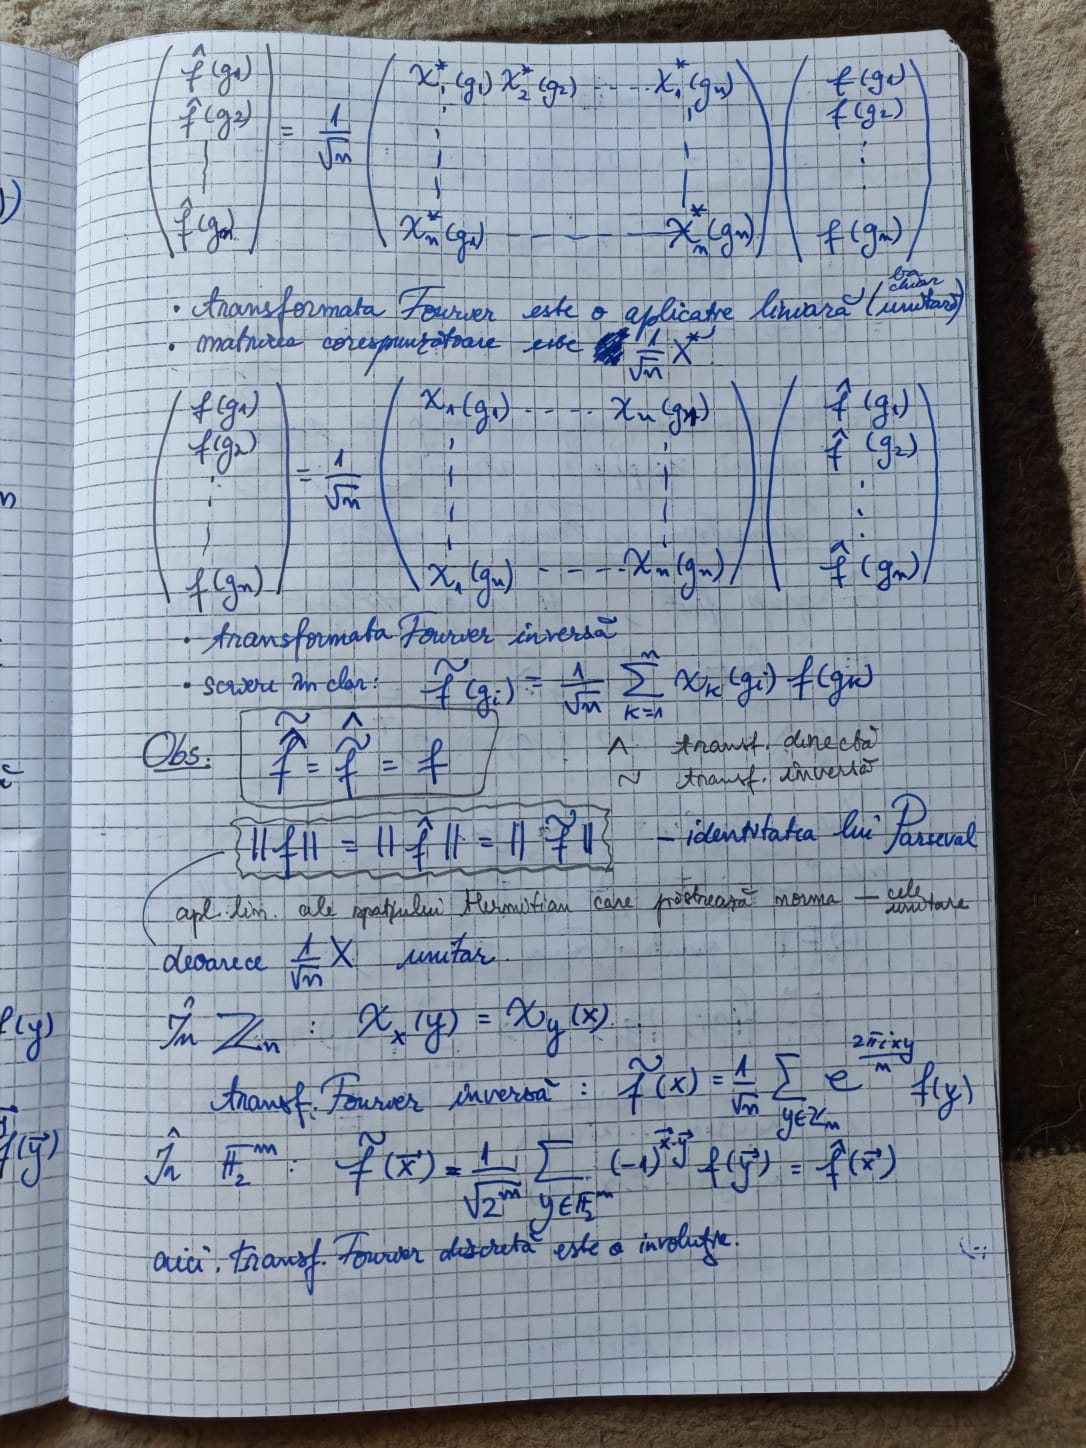 f̂(g1)
f̂(g2)
⋮
f̂(gn)
= 1/√n
χ1*(g1) χ2*(g2) ---- χ1*(gn)
⋮ ⋮
χn*(g1) ------ χn*(gn)
f(g1)
f(g2)
⋮
f(gn)
• transformata Fourier este o aplicație liniară (ba chiar unitară)
• matricea corespunzătoare este 1/√n X*
f(g1)
f(g2)
⋮
f(gn)
= 1/√n
χ1(g1) ---- χn(g1)
⋮ ⋮
χ1(gn) ---- χn(gn)
f̂(g1)
f̂(g2)
⋮
f̂(gn)
• transformata Fourier inversă
• scriere în clar: f̃(gi) = 1/√n Σ_{k=1}^{n} χk(gi) f(gk)
Obs: f̂̃ = f̃̂ = f
∧ transf. directă
~ transf. inversă
||f|| = ||f̂|| = ||f̃|| – identitatea lui Parseval
apl. lin. ale spațiului Hermitian care păstrează norma – cele unitare
deoarece 1/√n X unitar.
În ℤn : χx(y) = χy(x).
transf. Fourier inversă : f̃(x) = 1/√n Σ_{y∈ℤn} e^{2πixy/n} f(y)
În 𝔽2^m : f̃(x⃗) = 1/√2^m Σ_{y∈𝔽2^m} (-1)^{x⃗·y⃗} f(y⃗) = f̂(x⃗)
aici, transf. Fourier discretă este o involuție.
f(y)
f(y⃗)